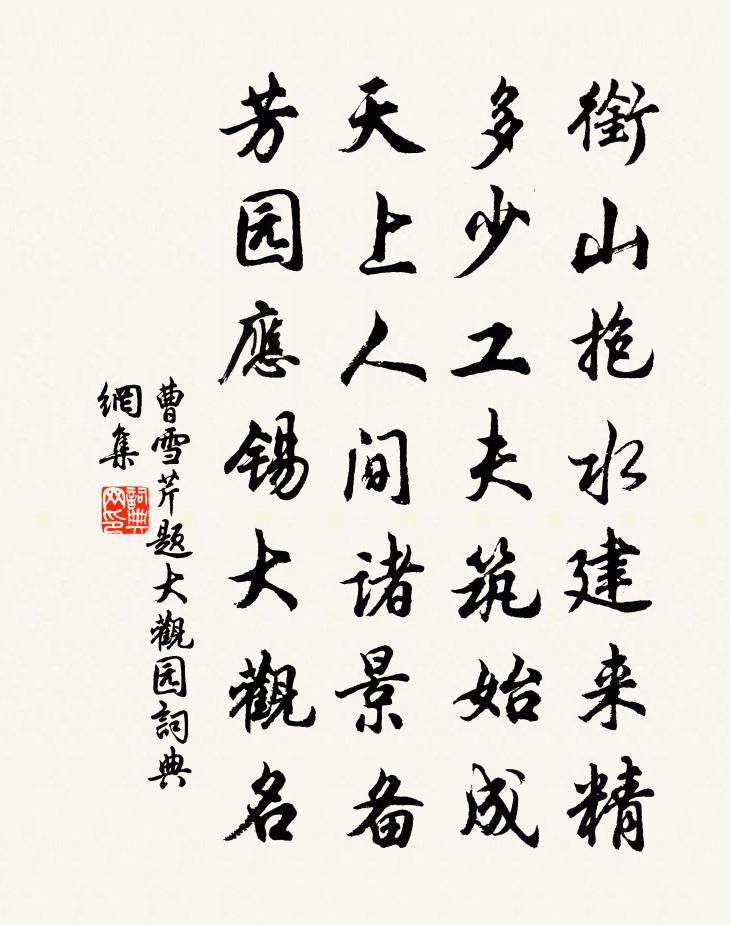 銜山抱水建来精
多少工夫筑始成
天上人间诸景备
芳园應锡大觀名
曹雪芹题大觀园詞典
網集
詞典
网印